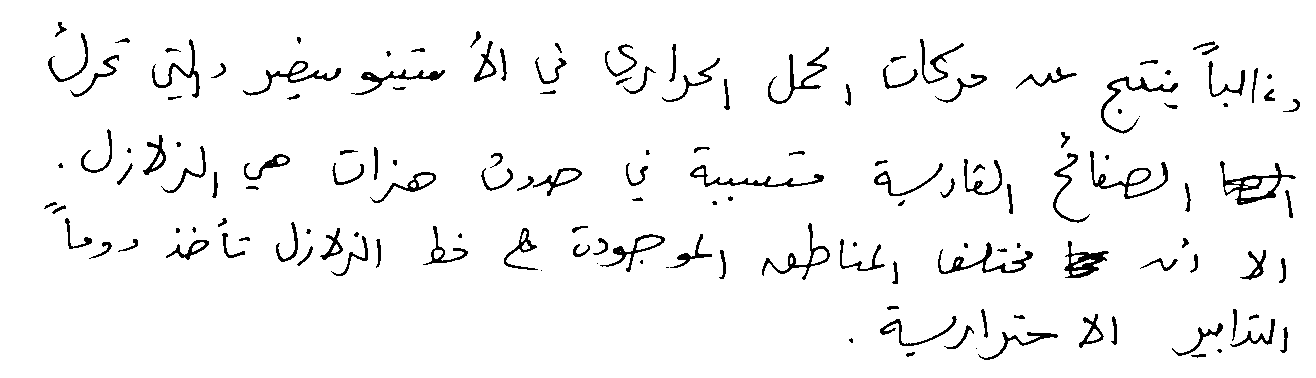 وغالباً ينتج عن حركات الحمل الحراري في الأستينوسفير والتي تحرك
الصفائح القارية متسببة في حدوث هزات هي الزلازل.
الا أن مختلف المناطق الموجودة على خط الزلازل تأخذ دوماً
التدابير الاحترازية.